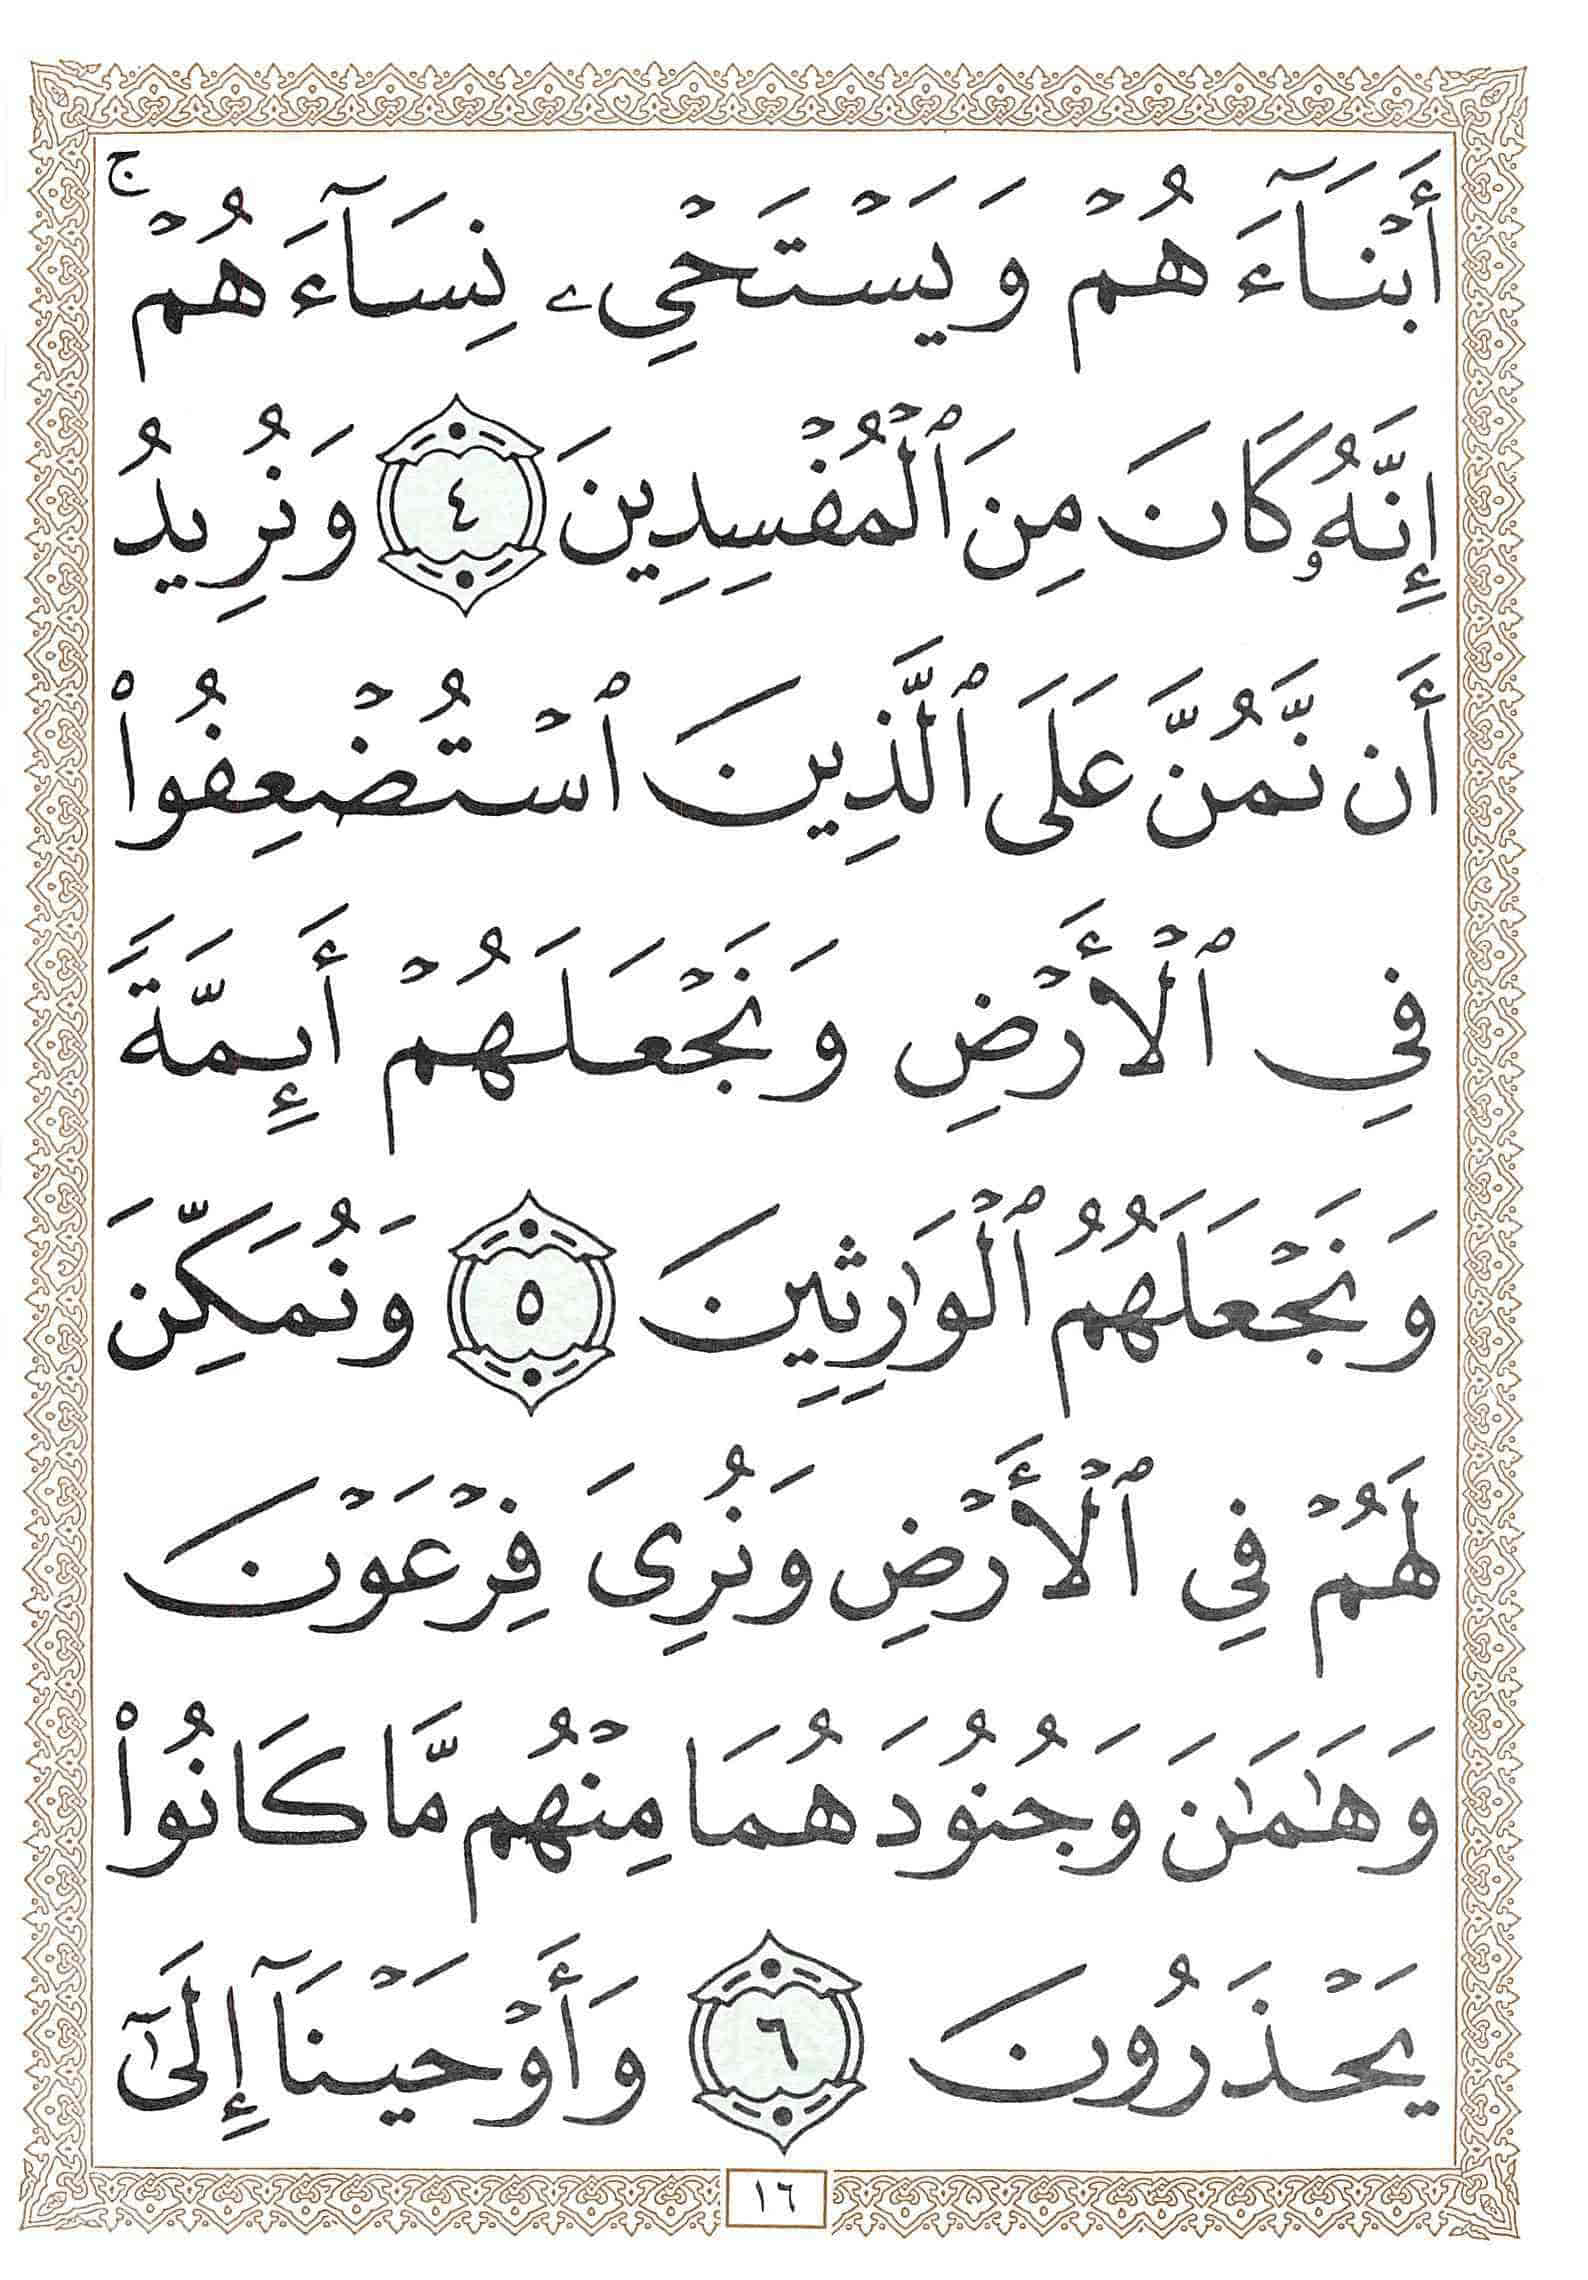 أَبْنَآءَهُمْ وَيَسْتَحْىِۦ نِسَآءَهُمْ ۚ
إِنَّهُۥ كَانَ مِنَ ٱلْمُفْسِدِينَ ٤ وَنُرِيدُ
أَن نَّمُنَّ عَلَى ٱلَّذِينَ ٱسْتُضْعِفُوا۟
فِي ٱلْأَرْضِ وَنَجْعَلَهُمْ أَئِمَّةً
وَنَجْعَلَهُمُ ٱلْوَٰرِثِينَ ٥ وَنُمَكِّنَ
لَهُمْ فِي ٱلْأَرْضِ وَنُرِىَ فِرْعَوْنَ
وَهَٰمَٰنَ وَجُنُودَهُمَا مِنْهُم مَّا كَانُوا۟
يَحْذَرُونَ ٦ وَأَوْحَيْنَآ إِلَىٰٓ
١٦